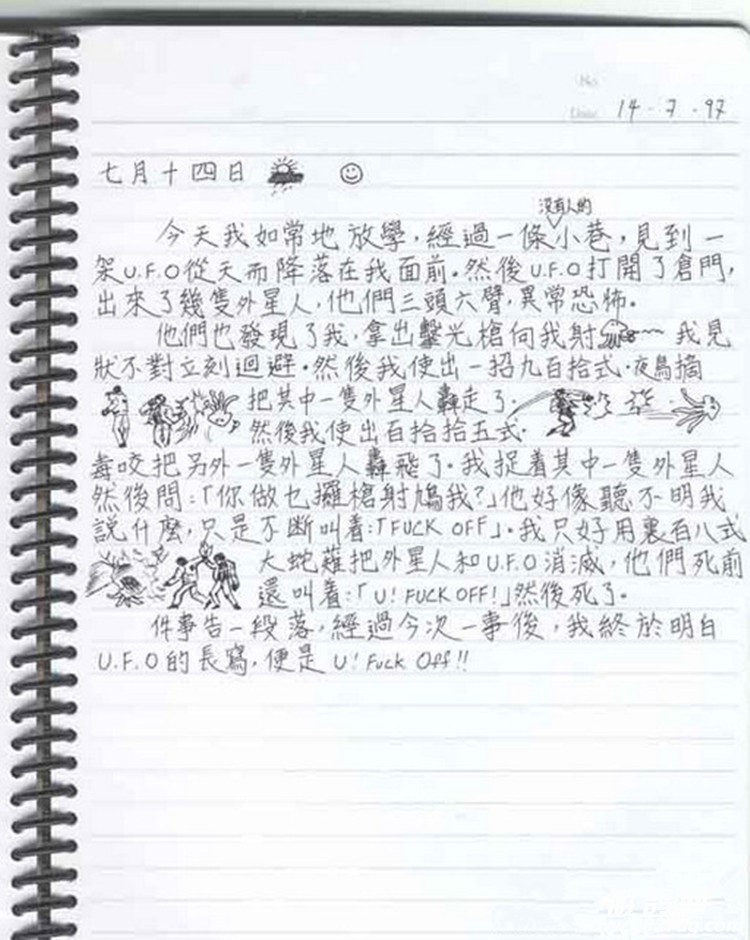 No.
Date 14 · 7 · 97
七月十四日
没有人的
今天我如常地放學,經過一條小巷,見到一
架U.F.O從天而降落在我面前。然後U.F.O打開了倉門,
出來了幾隻外星人,他們三頭六臂,異常恐怖。
他們也發現了我,拿出擊光槍向我射 我見
狀不對立刻迴避。然後我使出一招九百拾式·夜鳥摘
把其中一隻外星人轟走了.
然後我使出百拾拾五式·
毒咬把另外一隻外星人轟飛了。我捉着其中一隻外星人
然後問:「你做乜攞槍射鳩我?」他好像聽不明我
説什麼,只是不斷叫着:「FUCK OFF」。我只好用裏百八式
大蛇薙把外星人和U.F.O消滅,他們死前
還叫着:「U! FUCK OFF!」然後死了。
件事告一段落,經過今次一事後,我終於明白
U.F.O的長寫,便是U! Fuck Off!!